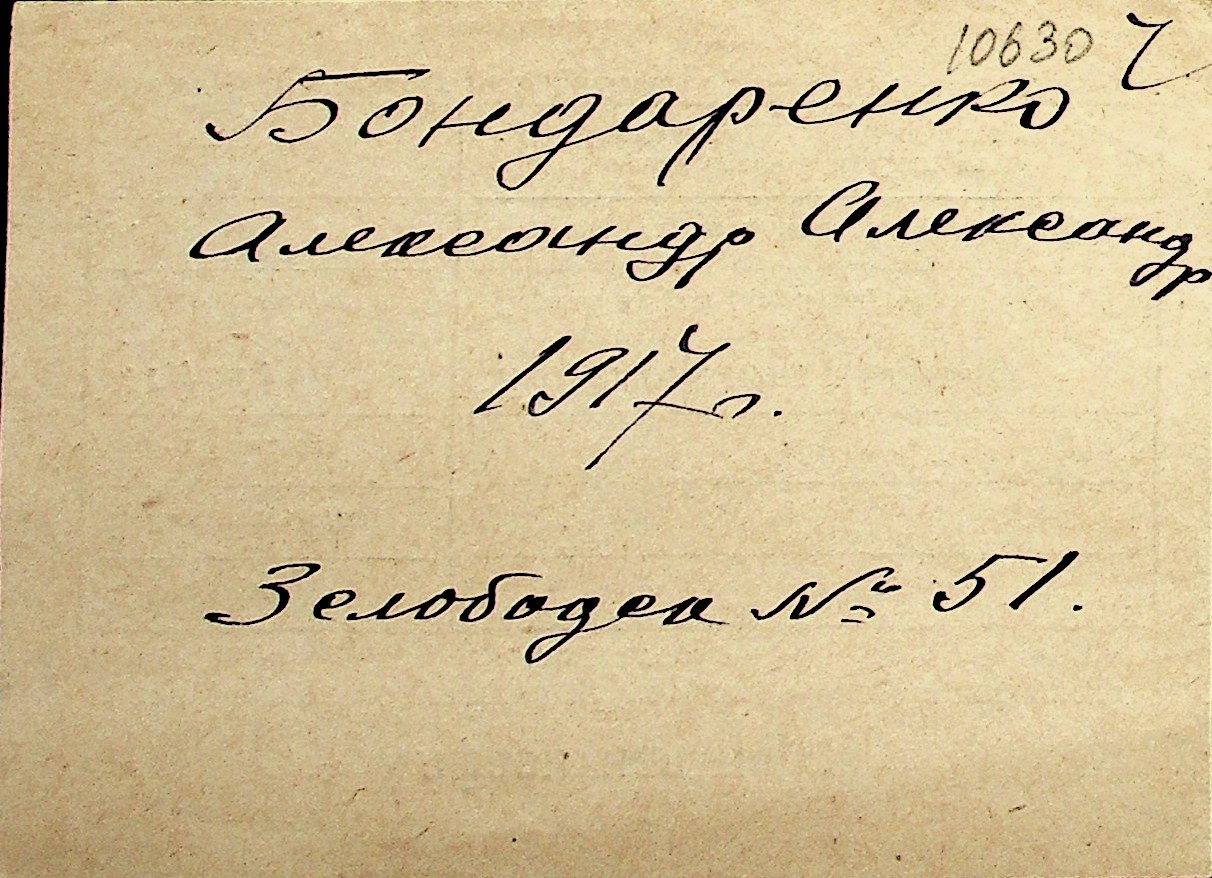 10630
Бондаренко
Александр Александр
1917 г.
№ 51.